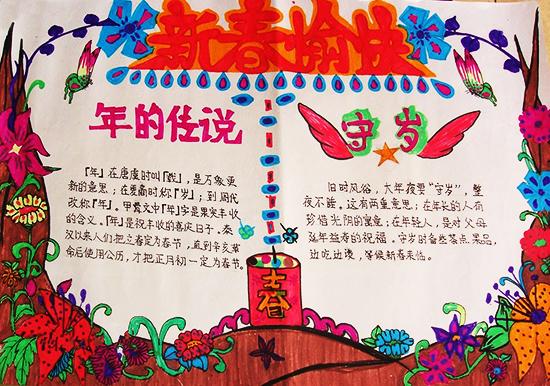 新春愉快
年的传说
「年」在唐虞时叫「载」,是万象更
新的意思;在夏商时称「岁」;到周代
改称「年」。甲骨文中「年」字是果实丰收
的含义。「年」是祝丰收的喜庆日子。秦
汉以来人们把立春定为春节,直到辛亥革
命后使用公历,才把正月初一定为春节。
守岁
旧时风俗,大年夜要“守岁”,整
夜不睡。这有两重意思:在年长的人有
珍惜光阴的寓意;在年轻人,是对父母
延年益寿的祝福。守岁时备些茶点、果品,
边吃边谈,等候新春来临。
春